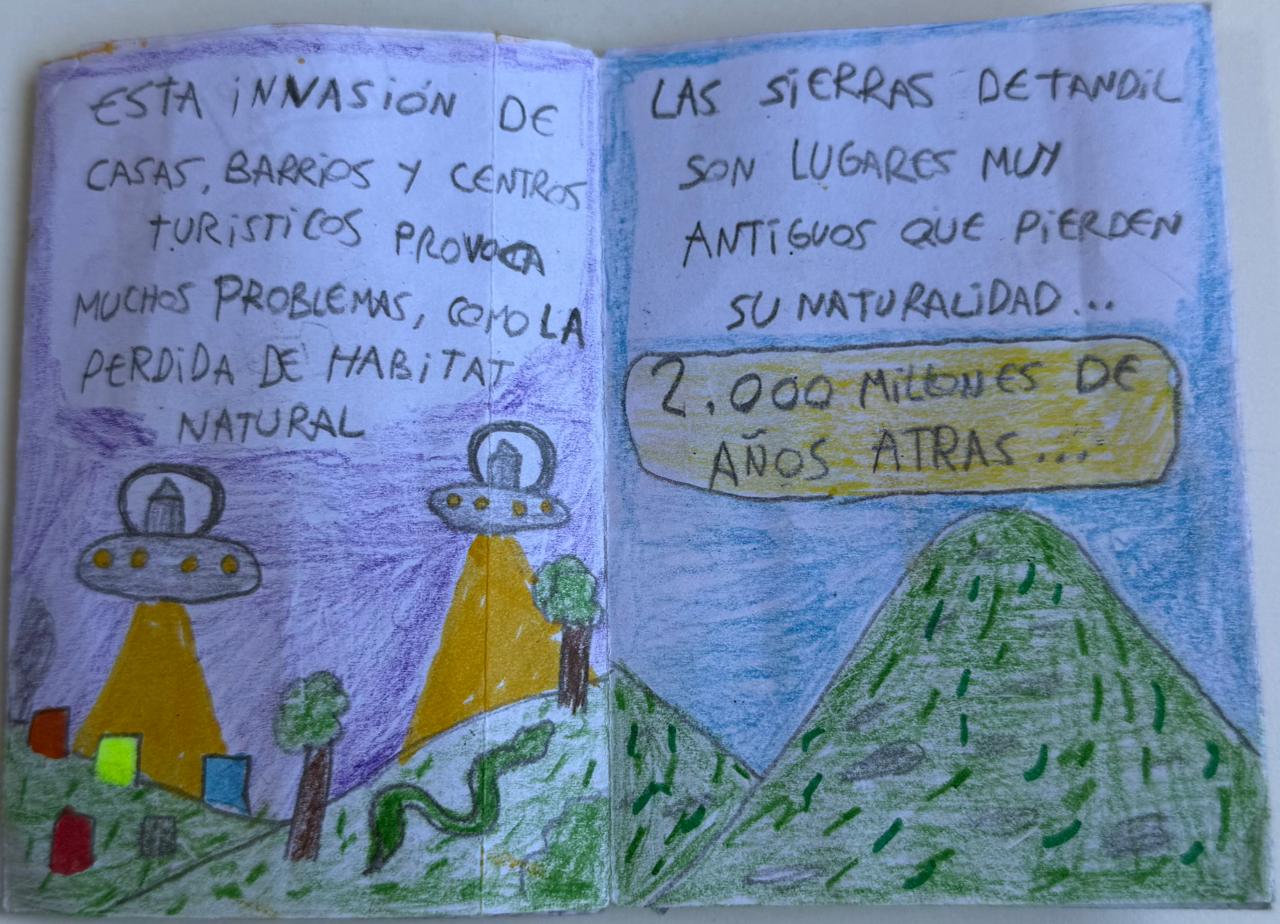 ESTA INVASIÓN DE
CASAS, BARRIOS Y CENTROS
TURISTICOS PROVOCA
MUCHOS PROBLEMAS, COMO LA
PERDIDA DE HABITAT
NATURAL
LAS SIERRAS DE TANDIL
SON LUGARES MUY
ANTIGUOS QUE PIERDEN
SU NATURALIDAD...
2.000 MILLONES DE
AÑOS ATRAS...